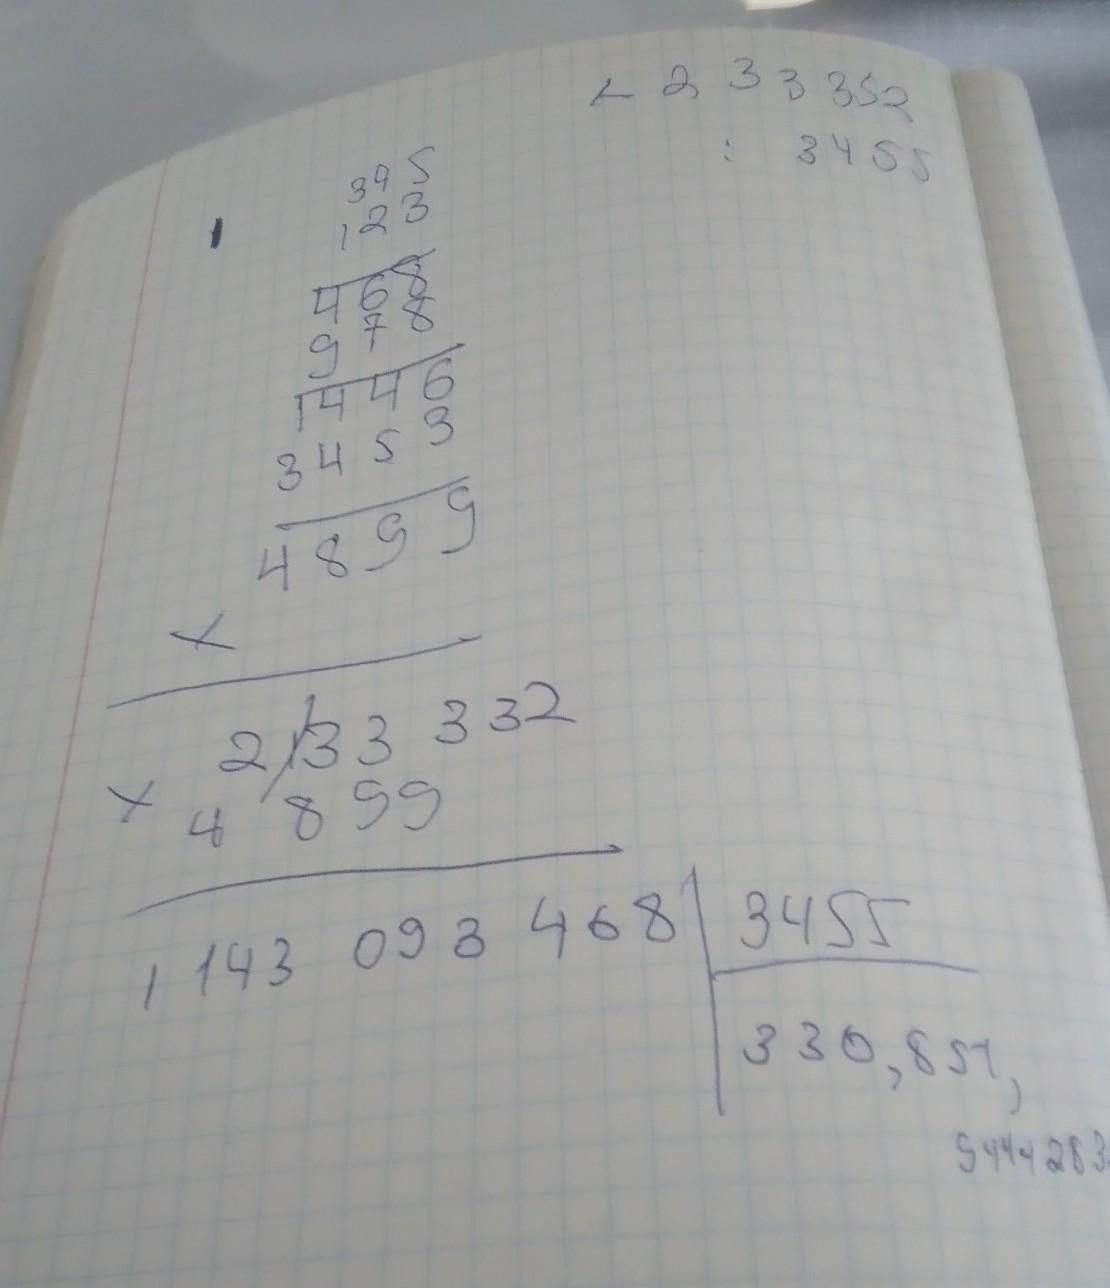 < 2 3 3 352
: 3455
345
123
468
978
1446
3453
4899
X
2133 332
X 4 899
1 143 093 468 | 3455
330,851,
9444283